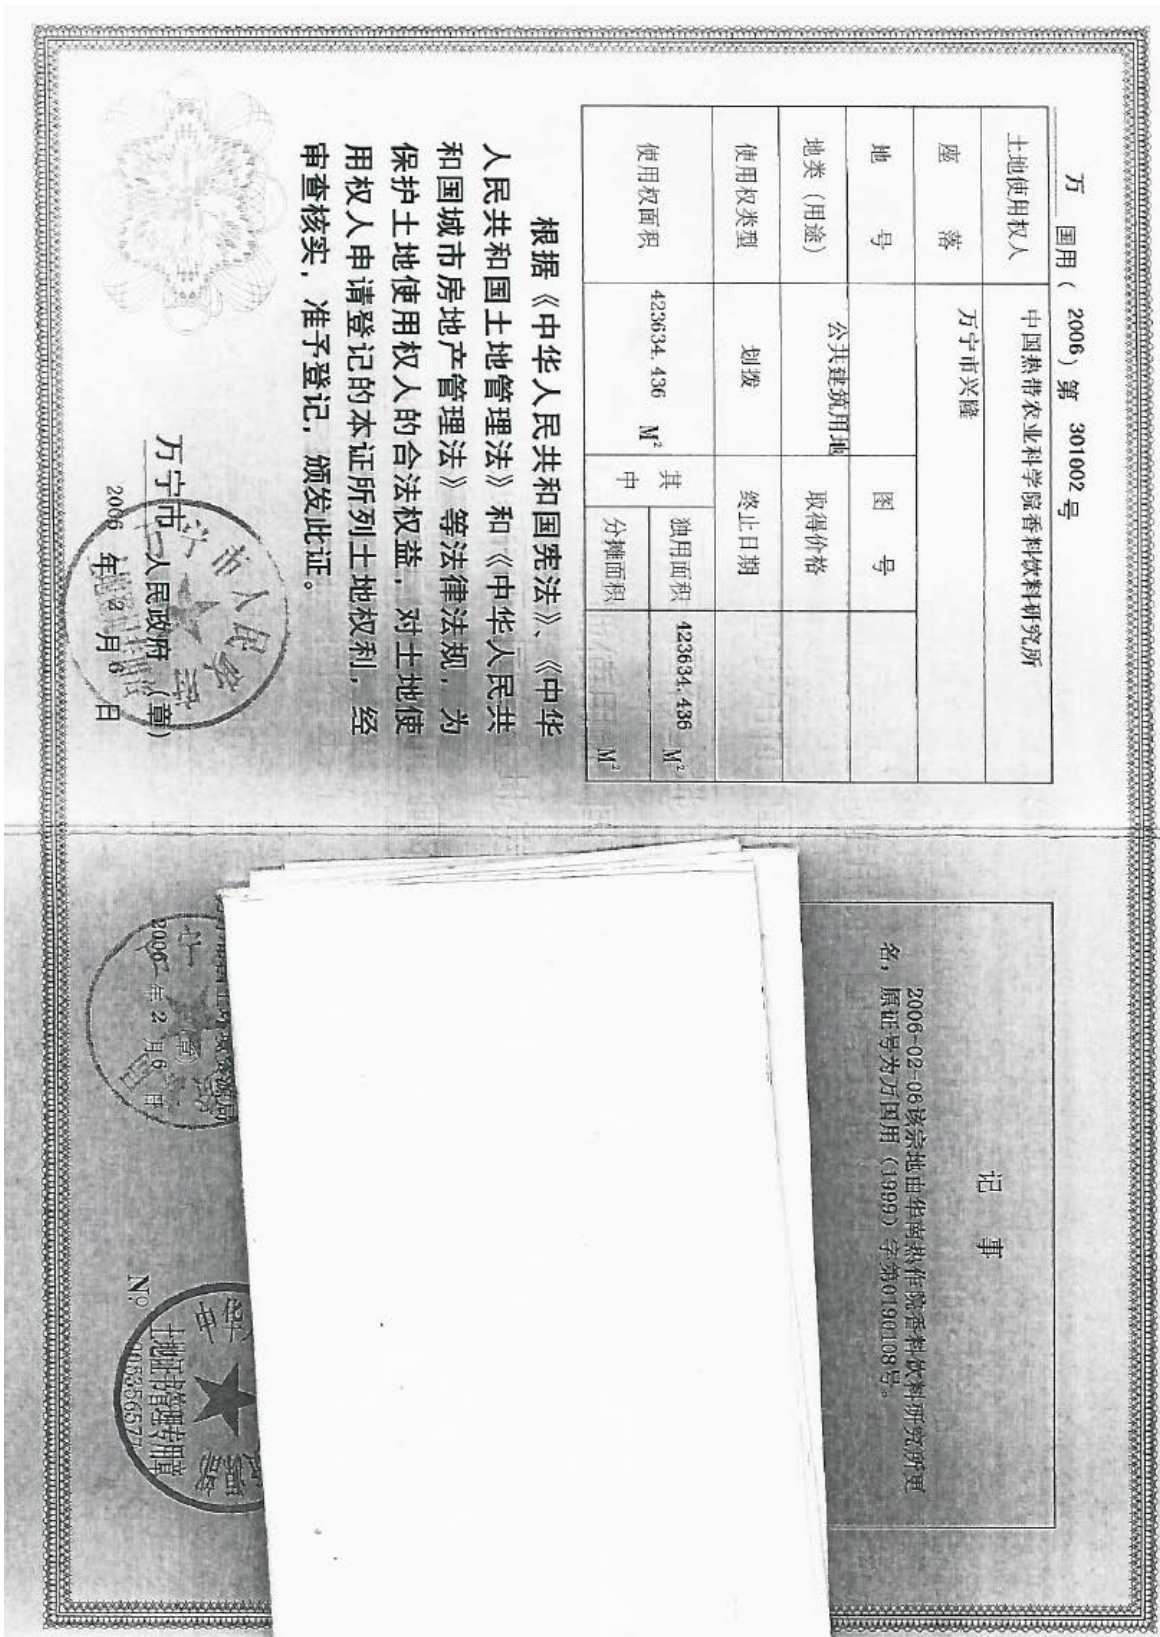 万 国用（ 2006）第 301002 号
土地使用权人 中国热带农业科学院香料饮料研究所
座 落 万宁市兴隆
地 号 图 号
地类（用途） 公共建筑用地 取得价格
使用权类型 划拨 终止日期
使用权面积 423634.436 M² 其中 独用面积 423634.436 M²
分摊面积 M²
根据《中华人民共和国宪法》、《中华
人民共和国土地管理法》和《中华人民共
和国城市房地产管理法》等法律法规，为
保护土地使用权人的合法权益，对土地使
用权人申请登记的本证所列土地权利，经
审查核实，准予登记，颁发此证。
万宁市 人民政府（章）
2006 年 2 月 6 日
记 事
2006-02-06该宗地由华南热作院香料饮料研究所更
名，原证号为万国用（1999）字第0190108号。
2006 年 2 月 6 日
中华
土地证书管理专用章
№ 005356577